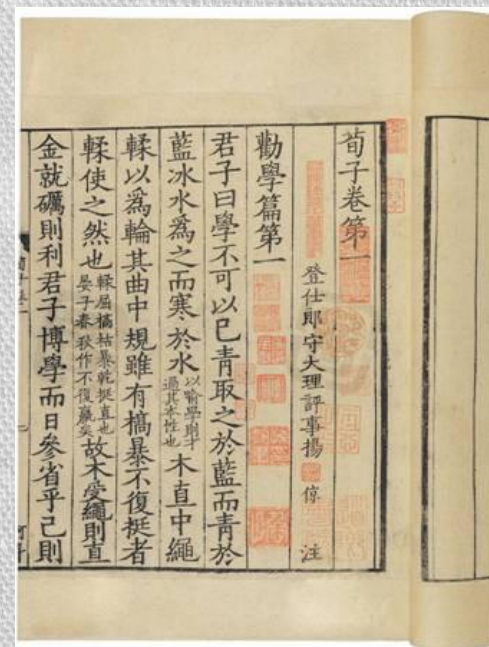 荀子卷第一
登仕郎守大理評事揚倞注
勸學篇第一
君子曰學不可以已青取之於藍而青於
藍冰水爲之而寒於水以喻學則才過其本性也木直中繩
輮以爲輪其曲中規雖有槁暴不復挺者
輮使之然也輮屈槁枯暴乾挺直也晏子春秋作不復贏矣故木受繩則直
金就礪則利君子博學而日參省乎己則